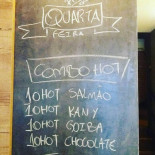 QUARTA
FEIRA
COMBO HOT
10HOT SALMÃO
10HOT KANY
10HOT GOIBA
10HOT CHOCOLATE